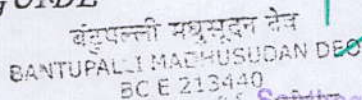 GUIDE
बंटुपल्ली मधुसूदन देव
BANTUPALLI MADHUSUDAN DEO
BC E 213440